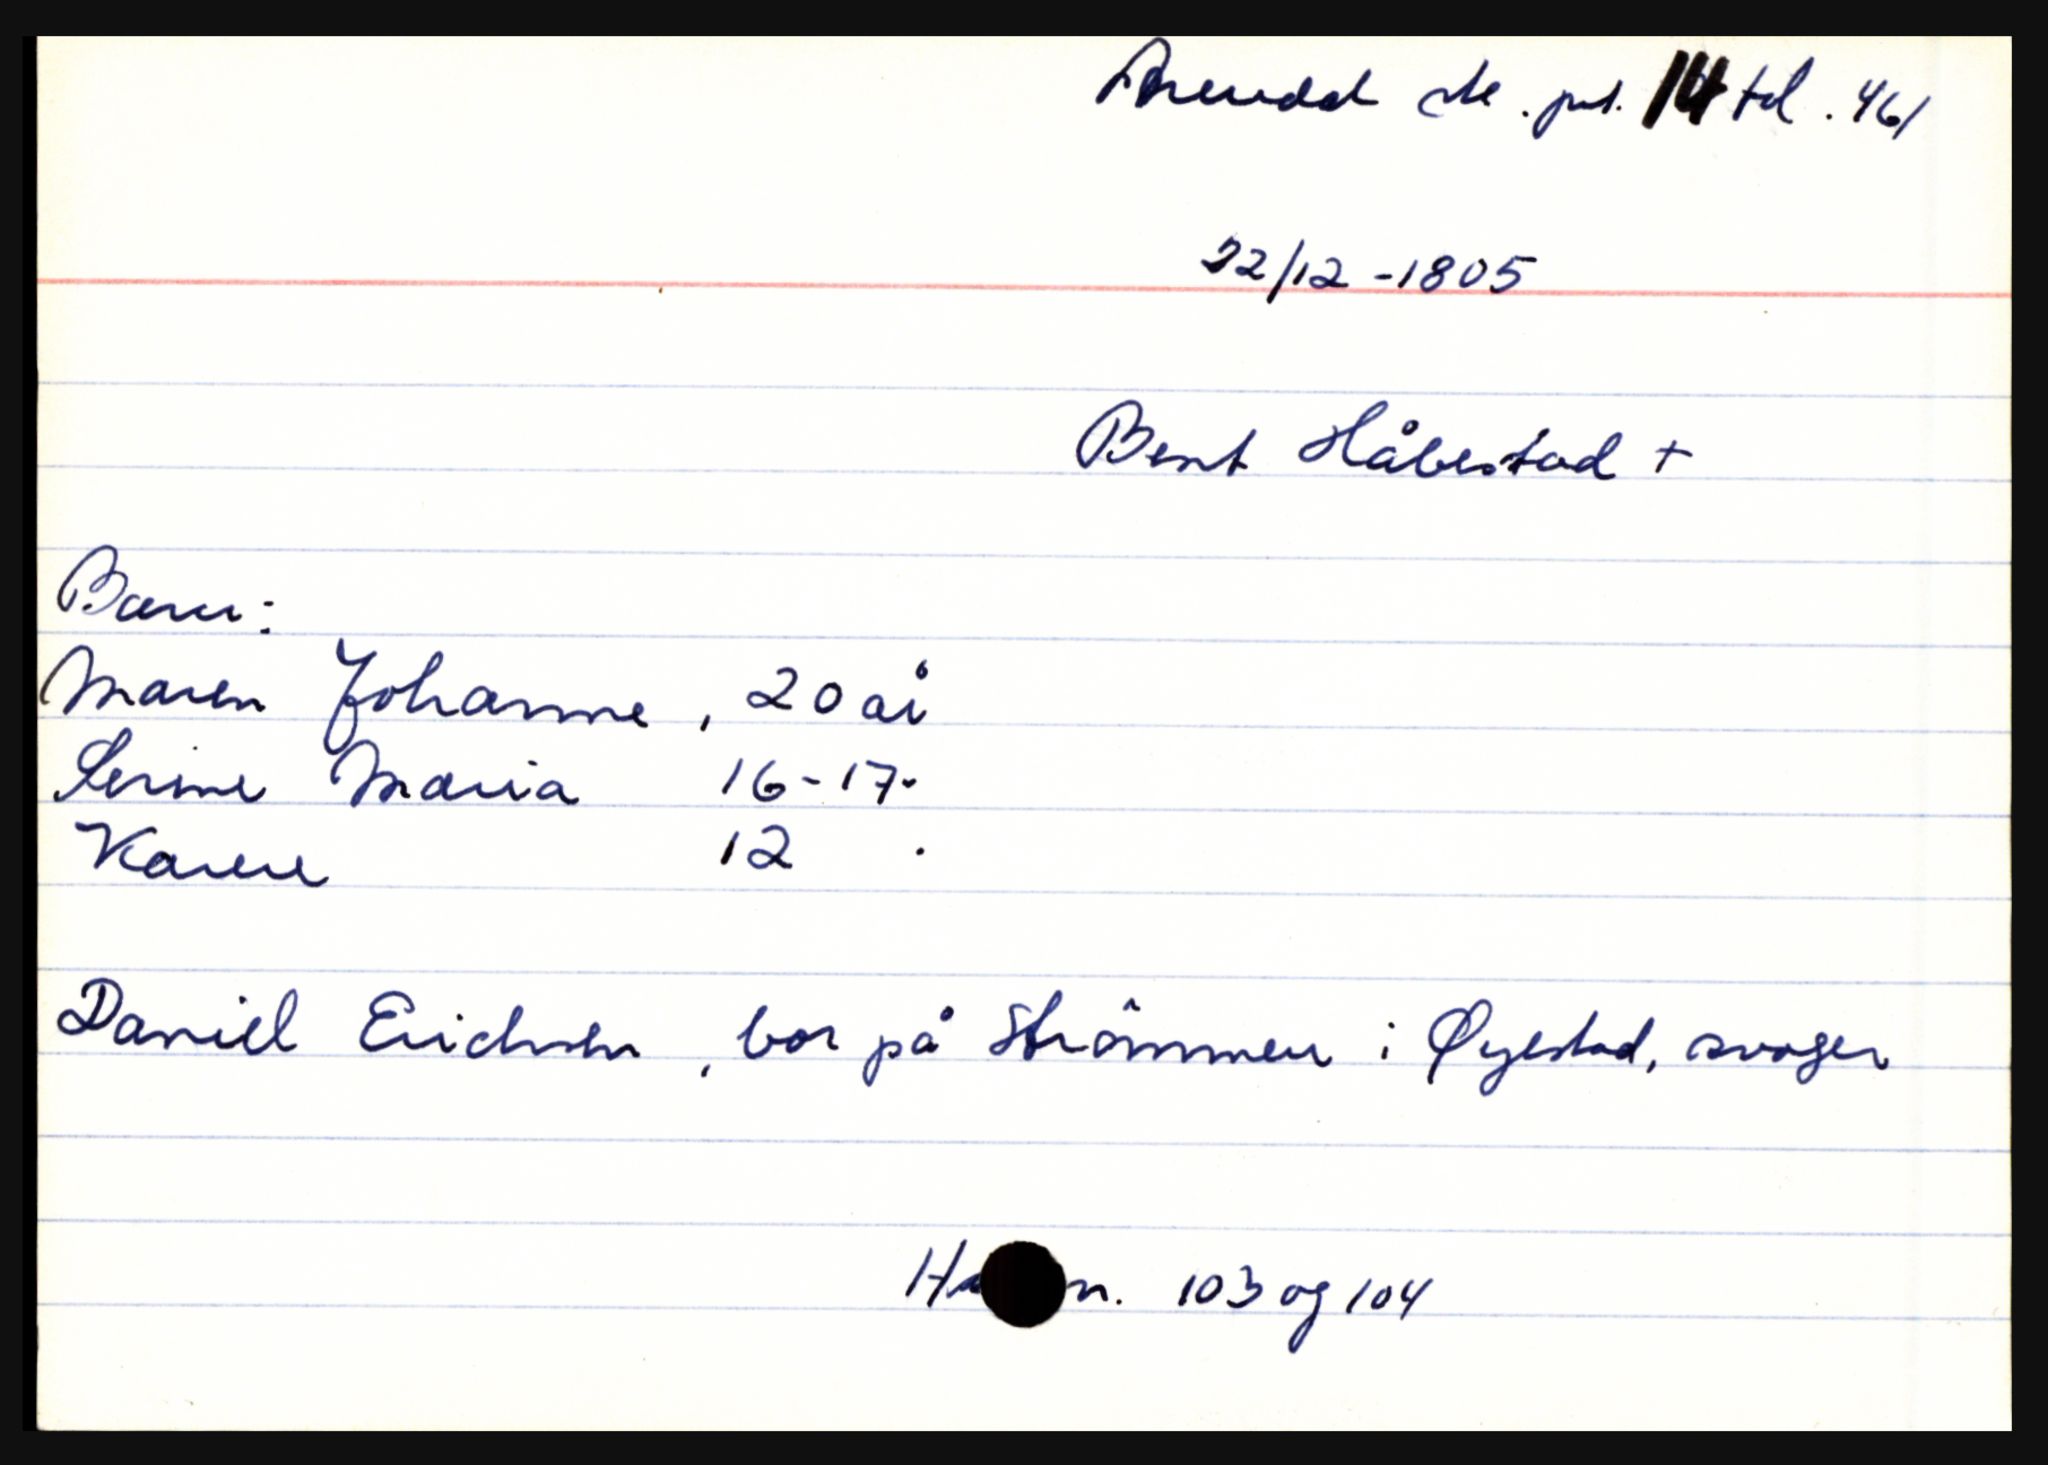 Arendal sk. prt. 14 fol. 461
22/12-1805
Bent Håbestad +
Barn:
Maren Johanne, 20 år
Serine Maria 16-17.
Karen 12 .
Daniel Erichsen, bor på Strömmen i Øyestad, svoger
n. 103 og 104